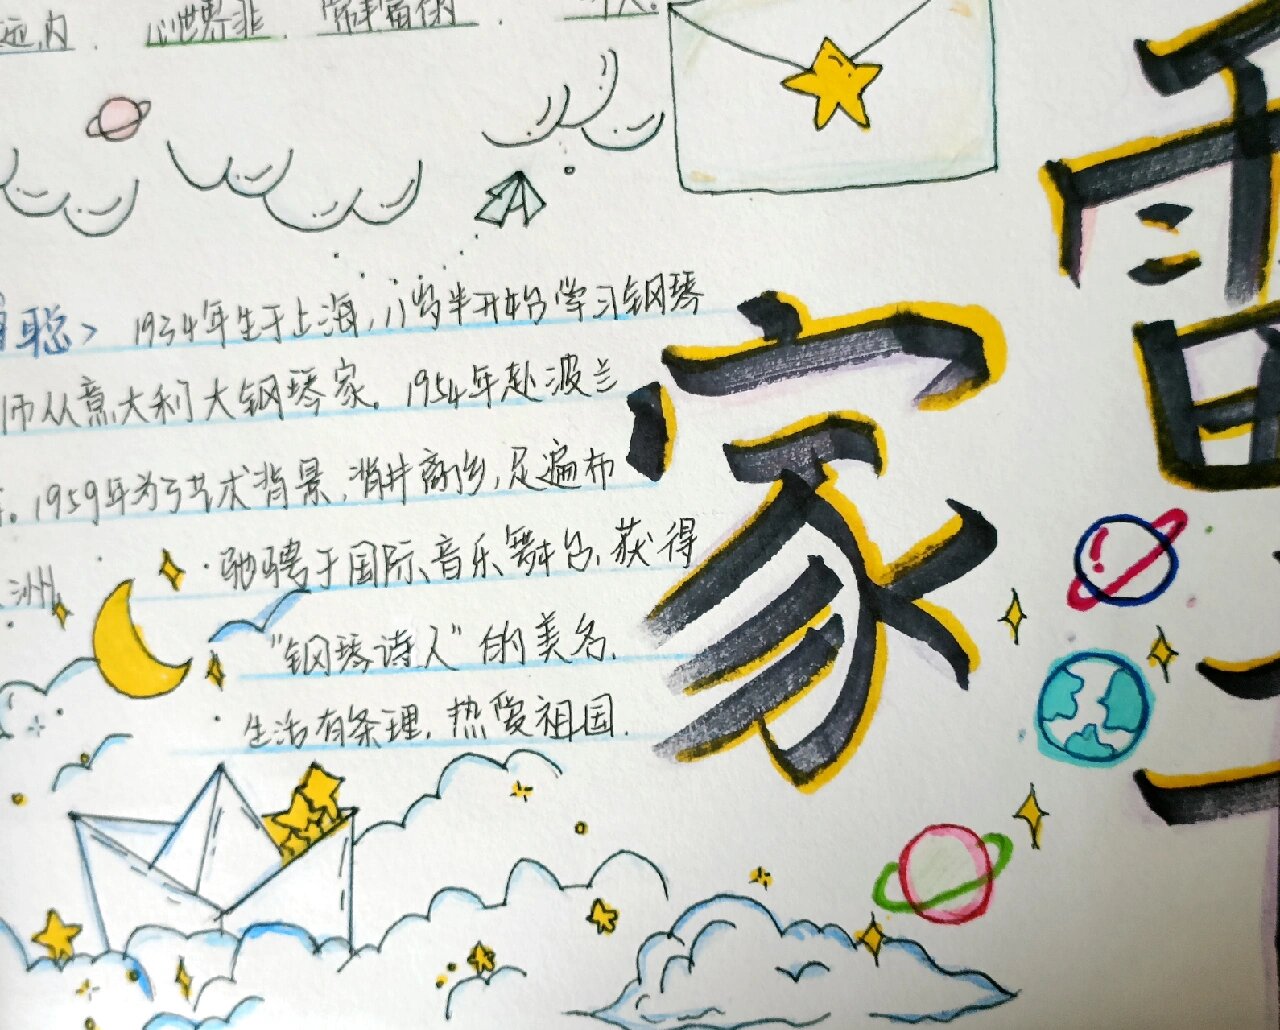 聪> 1934年生于上海,八岁半开始学习钢琴
师从意大利大钢琴家. 1954年赴波兰
。1959年为了艺术背景,背井离乡,足遍布
洲, 驰骋于国际、音乐舞台、获得
"钢琴诗人"的美名.
生活有条理,热爱祖国.
家